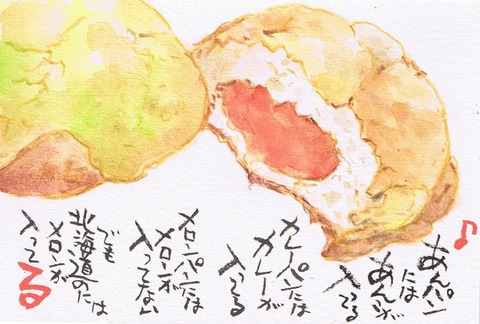 ♪あんパン
には
あんが
入ってる
カレーパンには
カレーが
入ってる
メロンパンには
メロンが
入ってない
でも
北海道のには
メロンが
入って
る